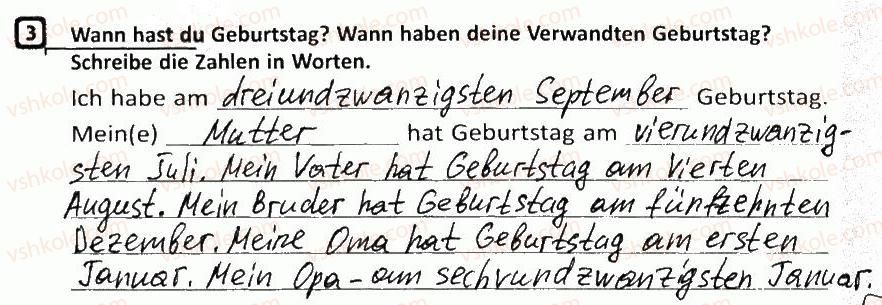 3 Wann hast du Geburtstag? Wann haben deine Verwandten Geburtstag?
Schreibe die Zahlen in Worten.
Ich habe am dreiundzwanzigsten September Geburtstag.
Mein(e) Mutter hat Geburtstag am vierundzwanzig-
sten Juli. Mein Vater hat Geburtstag am vierten
August. Mein Bruder hat Geburtstag am fünfzehnten
Dezember. Meine Oma hat Geburtstag am ersten
Januar. Mein Opa – am sechsundzwanzigsten Januar.